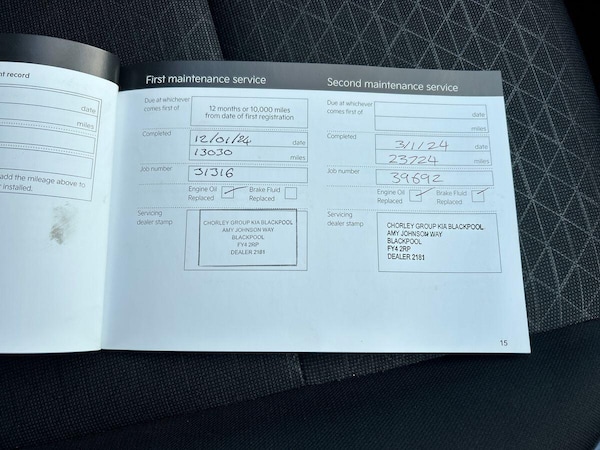 nt record
date
miles
add the mileage above to
installed.
First maintenance service
Due at whichever
comes first of
12 months or 10,000 miles
from date of first registration
Completed
12/01/24 date
13030 miles
Job number
31316
Engine Oil
Replaced
Brake Fluid
Replaced
Servicing
dealer stamp
CHORLEY GROUP KIA BLACKPOOL
AMY JOHNSON WAY
BLACKPOOL
FY4 2RP
DEALER 2181
Second maintenance service
Due at whichever
comes first of
date
miles
Completed
3/1/24 date
23724 miles
Job number
39692
Engine Oil
Replaced
Brake Fluid
Replaced
Servicing
dealer stamp
CHORLEY GROUP KIA BLACKPOOL,
AMY JOHNSON WAY
BLACKPOOL
FY4 2RP
DEALER 2181
15